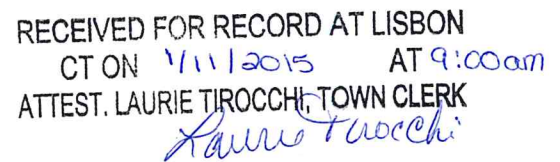 RECEIVED FOR RECORD AT LISBON
CT ON 1/11/2015 AT 9:00am
ATTEST. LAURIE TIROCCHI, TOWN CLERK
Laurie Tirocchi